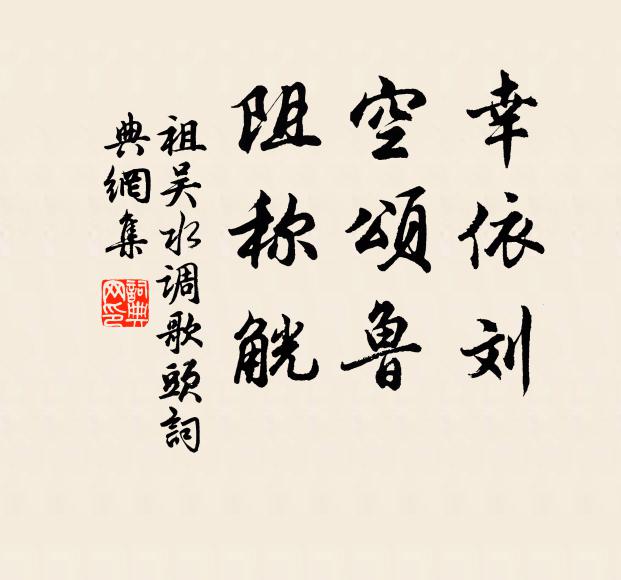 幸依刘
空颂鲁
阻称觥
祖吴水调歌头词
典网集
詞典
网印